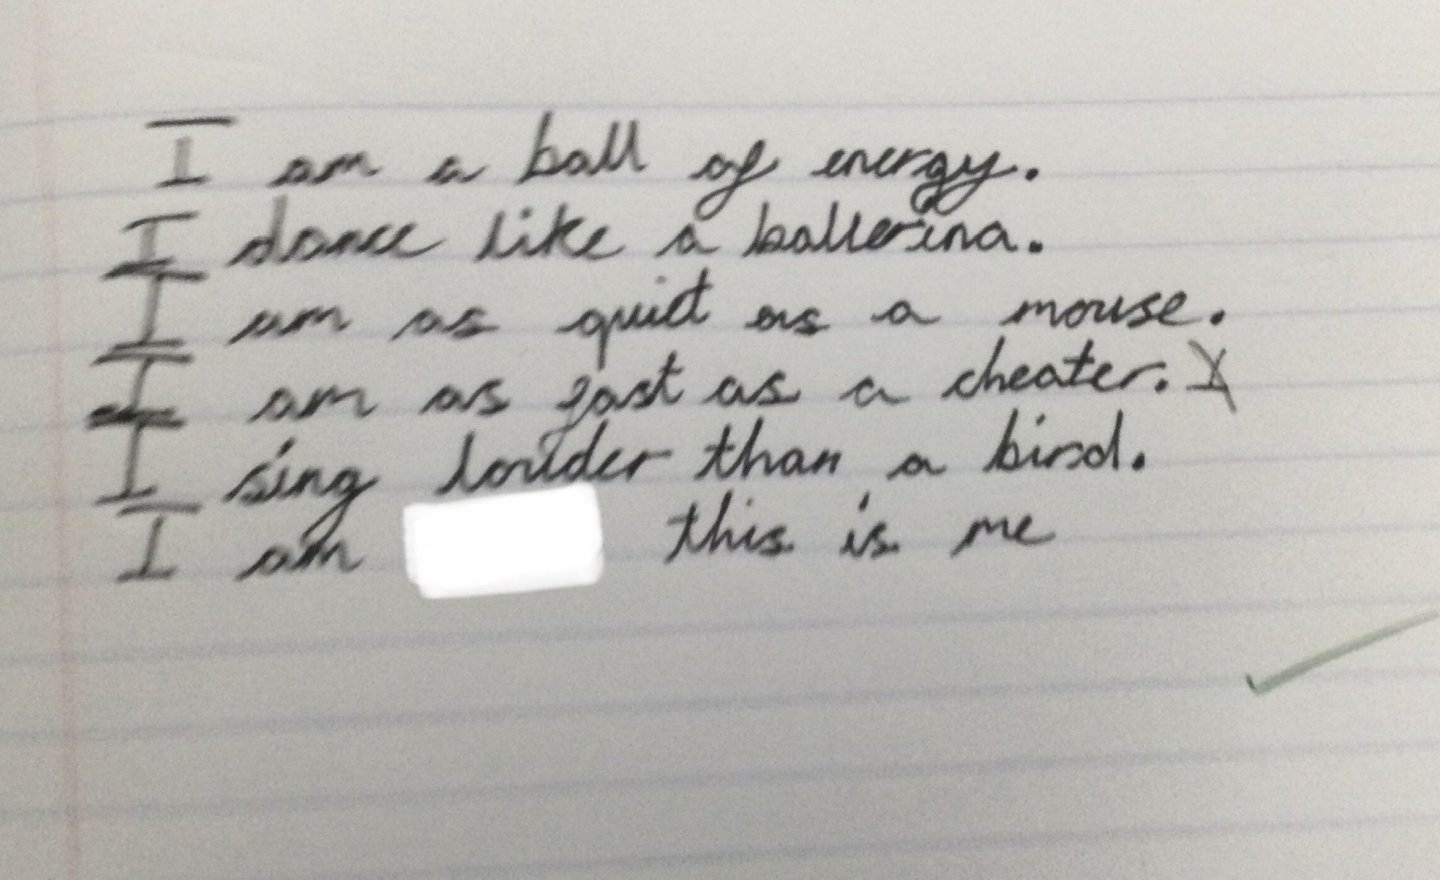 I am a ball of energy.
I dance like a ballerina.
I am as quiet as a mouse.
I am as fast as a cheater.
I sing louder than a bird.
I am this is me